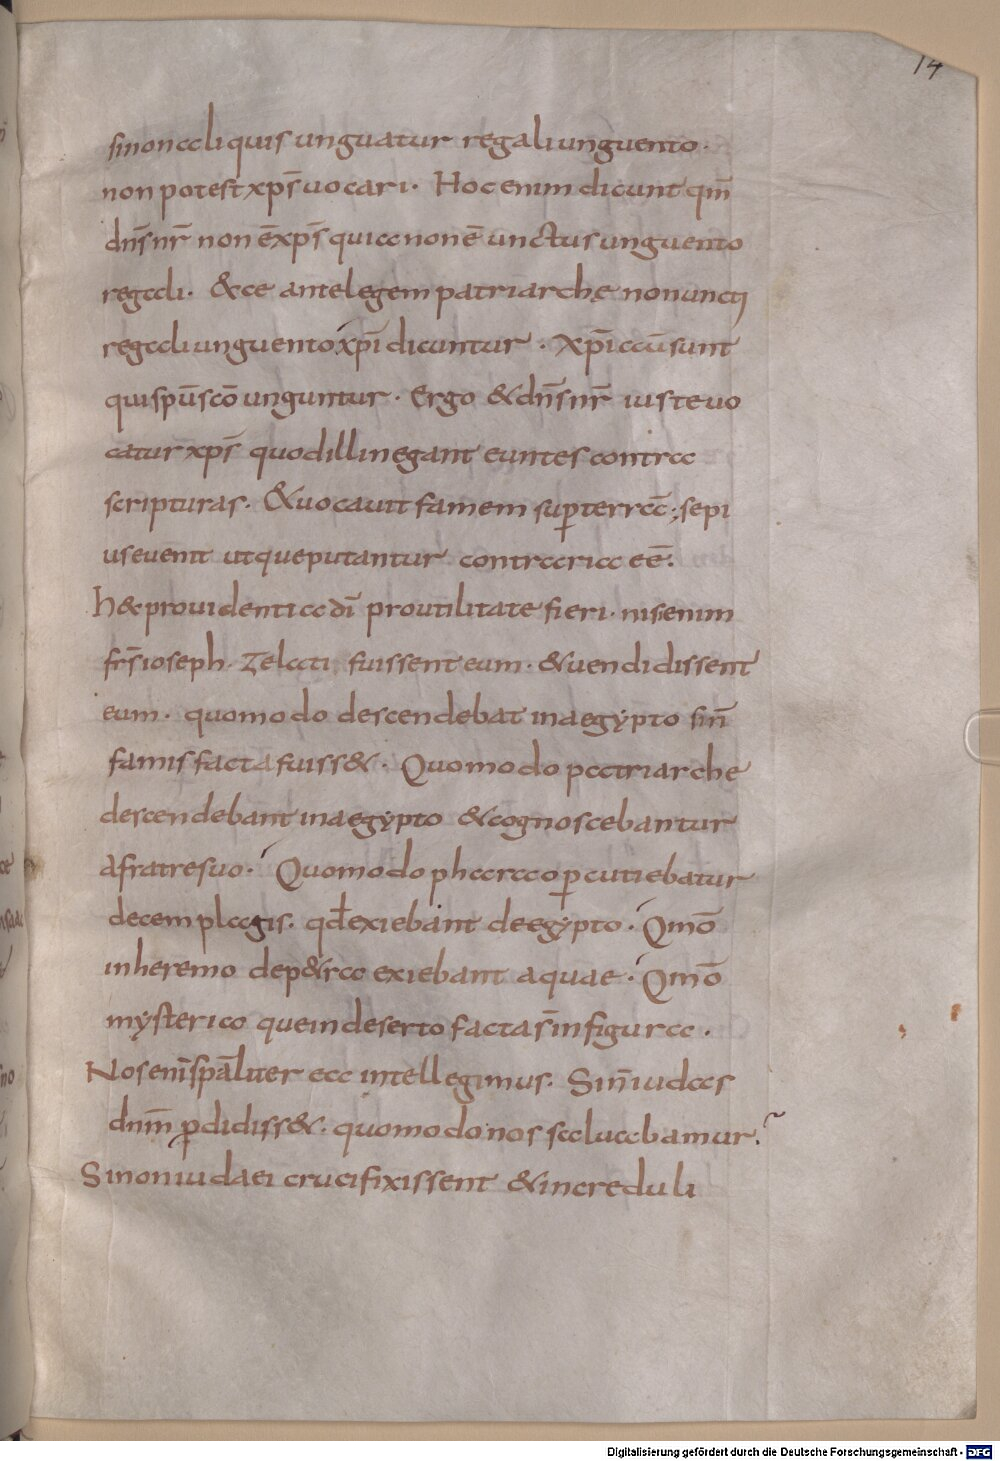 14
sinon aliquis unguatur regali unguento.
non potest xp̄s uocari. Hoc enim dicunt qm̄
dn̄s nr̄ non ē xp̄s quia non ē unctus unguento
regali. &ce ante legem patriarchę non uncti
regali unguento xp̄i dicuntur. Xp̄i aū sunt
qui spū scō unguntur. Ergo & dn̄s nr̄ iuste uo
catur xp̄s quod illi negant euntes contra
scripturas. & uocauit famem sup̄ terrā; sepi
us euenit ut que putantur contraria eē.
h& prouidentia dī pro utilitate fieri. nisi enim
frs̄ ioseph. Zelati fuissent eum. & uendidissent
eum. quomodo descendebat in aegypto sin̄
famis facta fuiss&. Quomodo patriarche
descendebant in aegypto & cognoscebantur
a fratre suo. Quomodo pharao p̄cutiebatur
decem plagis. qd̄ exiebant de egypto. Qm̄o
in heremo de p&ra exiebant aquae. Qm̄o
mysteria que in deserto facta s̄ in figura.
Nos enī spāliter ea intellegimus. Sin̄ iudas
dnm̄ p̄didiss&. quomodo nos saluabamur.
Si non iudaei crucifixissent & increduli
Digitalisierung gefördert durch die Deutsche Forschungsgemeinschaft - DFG